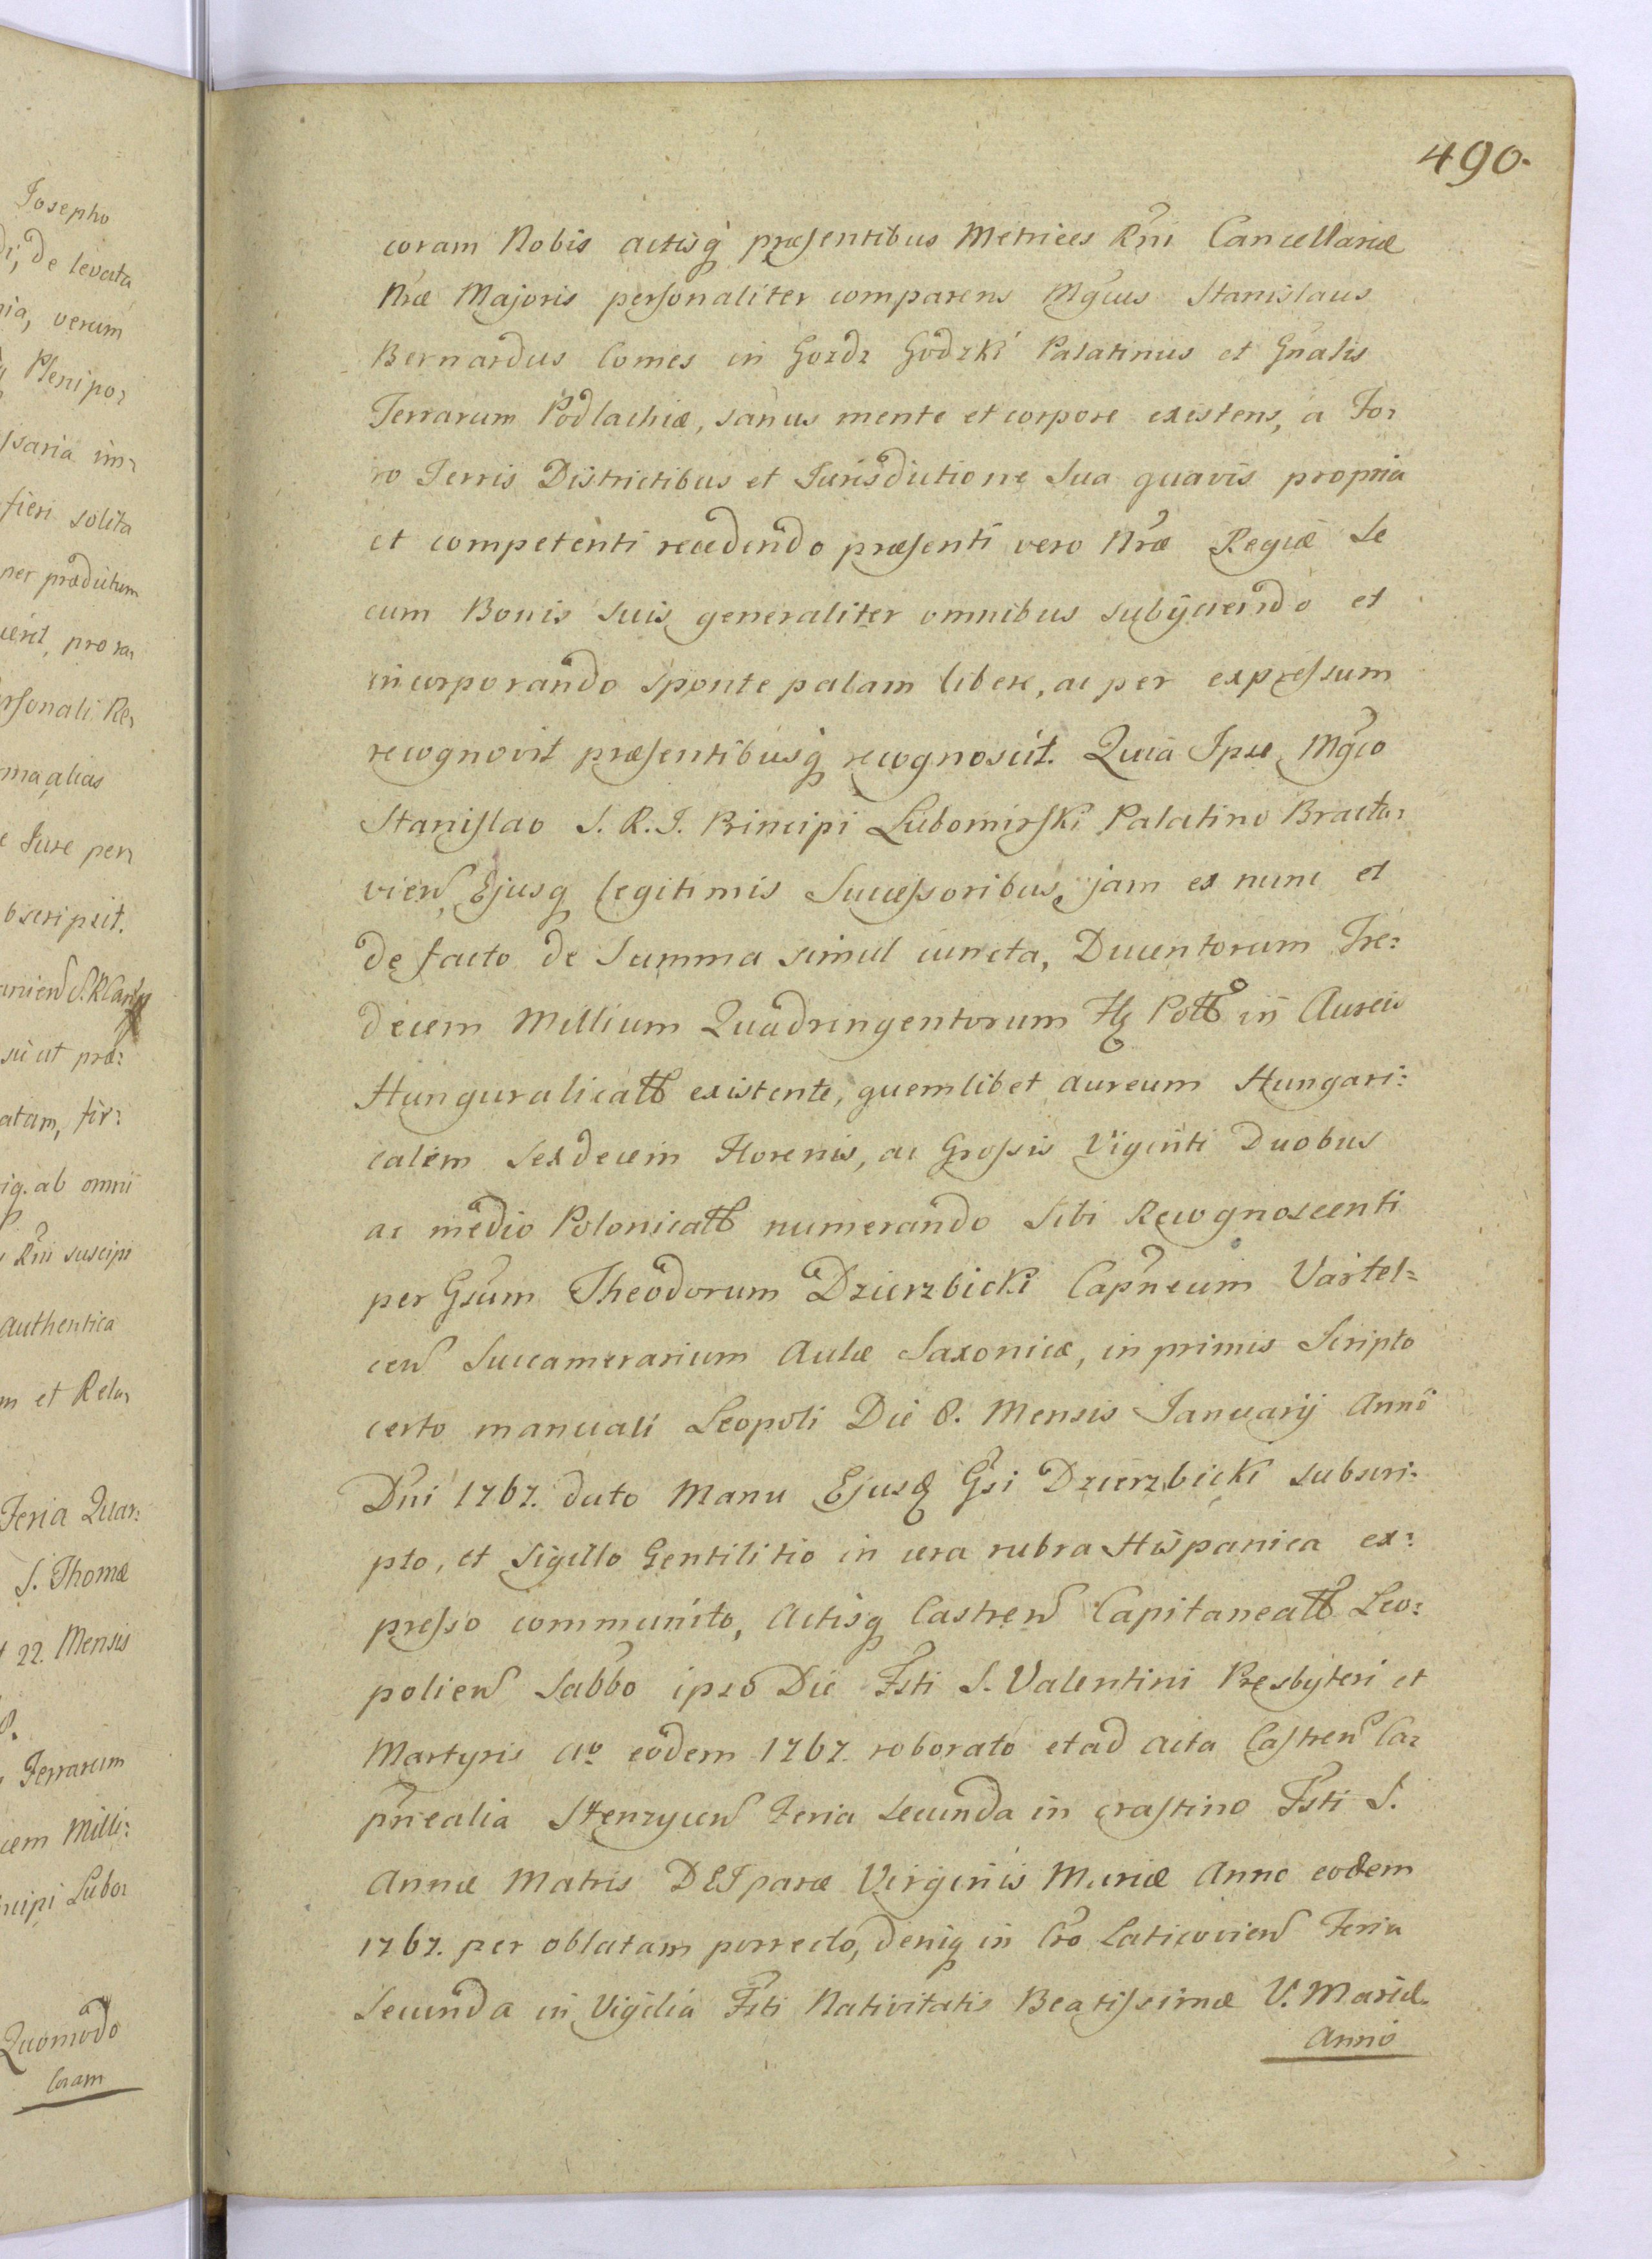 Josepho
de levata
nia, verum
Plenipo:
ssaria im:
fieri solita
per prædictum
rsonali Re:
ma alias
Jure per:
bscripsit.
sú ut præ:
atam, fir:
ig. ab omni
Rñi suscipi
Authentica
m et Rela:
Feria Quar:
S. Thomæ
22. Mensis
Terrarum
cem Milli:
ncipi Lubo:
Quomodo
Coram
490.
coram Nobis actisq́ præsentibus Metrices Rñi Cancellariæ
Nræ Majoris personaliter comparens Mgcus Stanislaus
Bernardus Comes in Gozdz Godzki Palatinus et Gñalis
Terrarum Podlachiæ, sanus mente et corpore existens, a Fo:
ro Terris Districtibus et Jurisdictione Sua quavis propria
et competenti recedendo præsenti vero Nræ Regiæ Se
cum Bonis suis generaliter omnibus subijciendo et
incorporando sponte palam libere, ac per expressum
recognovit præsentibusq́ recognoscit. Quia Ipse Mgco
Stanislao S. R. I. Principi Lubomirski Palatino Bracla:
vien̄ Ejusq legitimis Successoribus, jam ex nunc et
de facto de Summa simul iuncta, Ducentorum Tre:
decem Millium Quadringentorum Fl Poll in Aureis
Hunguralicall existente, quemlibet aureum Hungari:
calem Sexdecem Florenis, ac Grossis Viginti Duobus
ac medio Polonicall numerando Sibi Recognoscenti
per Gsum Theodorum Dzierzbicki Capñeum Vartel=
cen̄ Succamerarium Aulæ Saxonicæ, in primis Scripto
certo manuali Leopoli Die 8. Mensis Januarij Anno
Dñi 1767. dato Manu Ejusd Gsi Dzierzbicki subscri:
pto, et Sigillo Gentilitio in cera rubra Hispanica ex:
presso communito, Actisq Castren̄ Capitaneall Leo:
polien̄ Sabbo ipso Die Fsti S. Valentini Presbyteri et
Martyris Aº eodem 1767. roborato et ad Acta Castren̄ Ca:
pñealia Stenzycen̄ Feria Secunda in crastino Fsti S.
Annæ Matris DEIparæ Virginis Mariæ Anno eodem
1767. per oblatam porrecto, deniq in Cro Laticovien̄ Feria
Secunda in Vigilia Fsti Nativitatis Beatissimæ V. Mariæ.
Anno